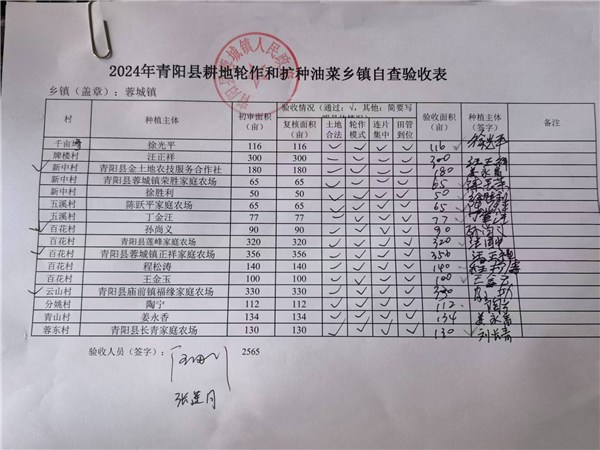 2024年青阳县耕地轮作和扩种油菜乡镇自查验收表
乡镇（盖章）：蓉城镇
村 种植主体 初审面积（亩） 验收情况（通过：√，其他：简要写 验收面积（亩） 种植主体（签字） 备注
复核面积（亩） 土地合法 轮作模式 连片集中 田管到位
徐光平 116 116 √ √ √ √ 116 徐光平
牌楼村 汪正祥 300 300 √ √ √ √ 300
新中村 青阳县金土地农技服务合作社 180 180 √ √ √ √ 180
新中村 青阳县蓉城镇荣胜家庭农场 65 65 √ √ √ √ 65
新中村 徐胜利 50 50 √ √ √ √ 50
五溪村 陈跃平家庭农场 65 65 √ √ √ √ 65
五溪村 丁金汪 77 77 √ √ √ √ 77
百花村 孙尚义 90 90 √ √ √ √ 90
百花村 青阳县莲峰家庭农场 320 320 √ √ √ √ 320
百花村 青阳县蓉城镇正祥家庭农场 356 356 √ √ √ √ 356
百花村 程松涛 140 140 √ √ √ √ 140
百花村 王金玉 100 100 √ √ √ √ 100
云山村 青阳县庙前镇福缘家庭农场 330 330 √ √ √ √ 330
分姚村 陶宁 112 112 √ √ √ √ 112 陶宁
青山村 姜永香 134 134 √ √ √ √ 134 姜永香
蓉东村 青阳县长青家庭农场 130 130 √ √ √ √ 130 刘长青
验收人员（签字）： 2565
张莲月